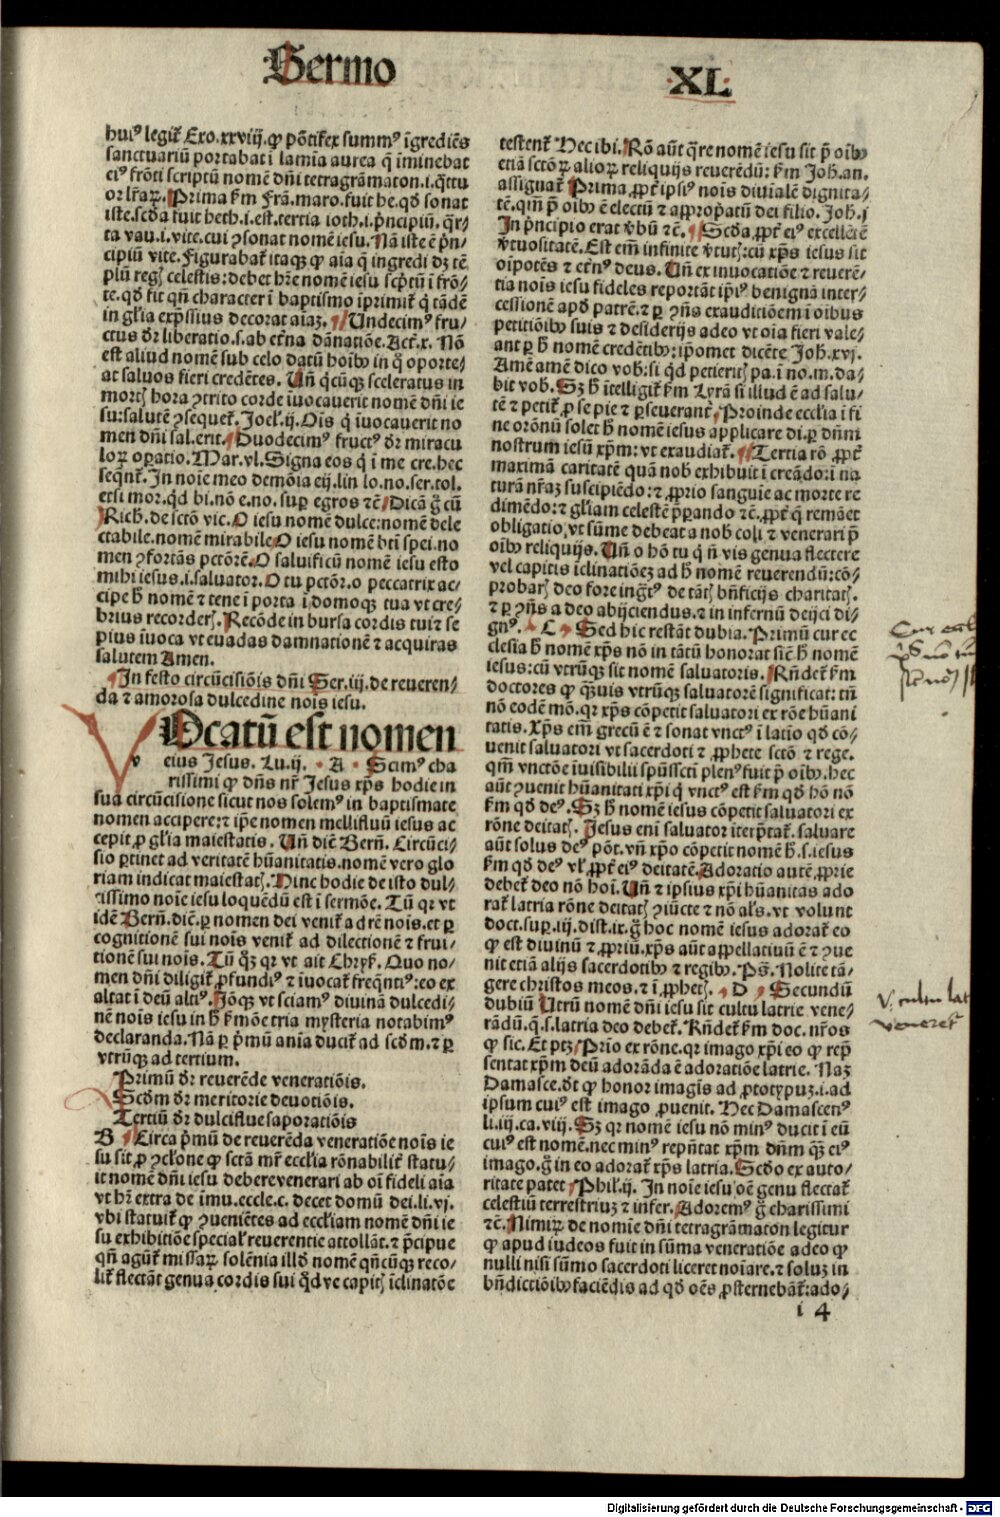 Sermo
XL
huiꝰ legit̃ Exo.xxviij. ꝙ põtifex summꝰ ĩgrediẽs
sanctuariũ portabat ĩ lamĩa aurea q̃ ĩminebat
eiꝰ frõti scriptũ nomẽ dñi tetragrãmaton.i.q̃ttu
or lr̃aꝝ. Prima ẜm Frã.maro.fuit he.qđ sonat
iste.scđa fuit heth.i.est.tertia ioth.i.p̃ncipiũ.q̃r-
ta vau.i.vite.cui ꝯsonat nomẽ iesu. Nã iste ẽ p̃n-
cipiũ vite. Figurabat̃ itaqꝫ ꝙ aĩa q̃ ingredi dꝫ tẽ
plũ regꝭ celestis: debet hr̃e nomẽ iesu scp̃tũ ĩ frõ-
te.qđ fit qñ character ĩ baptismo ĩprimit̃ q̇ tãdẽ
in gl̃ia exp̃ssius decorat aĩaꝫ. Undecimꝰ fru-
ctus dr̃ liberatio.s.ab et̃na dãnatiõe. Act̃.x. Nõ
est aliud nomẽ sub celo datũ hoĩbꝰ in q̊ oporte-
at saluos fieri credẽtes. Uñ q̇cũqꝫ sceleratus in
mortꝭ hora ꝯtrito corde ĩuocauerit nomẽ dñi ie
su: salutẽ ꝯsequet̃. Joel̃.ij. Oĩs q̇ ĩuocauerit no
men dñi sal.erit. Duodecimꝰ fructꝰ dr̃ miracu
loꝝ oꝑatio. Mar.vl. Signa eos q̇ ĩ me cre.hec
seq̃nt̃. In noĩe meo demõia eij.lin lo.no.ser.tol.
etsi mor.qđ bi.nõ e.no.suꝑ egros ⁊c̃. Dicã g̊ cũ
Rich.de sctõ vic. O iesu nomẽ dulce: nomẽ dele
ctabile.nomẽ mirabile. O iesu nomẽ bt̃i spei.no
men ꝯfortãs pctõrẽ. O saluificũ nomẽ iesu esto
mihi iesus.i.saluator. O tu pctõr.o peccatrix ac-
cipe h̃ nomẽ ⁊ tene ĩ porta ĩ domoqꝫ tua vt cre-
brius recorderꝭ. Recõde in bursa cordis tui ⁊ se
pius ĩuoca vt euadas damnationẽ ⁊ acquiras
salutem Amen.
In festo circũcisiõis dñi Ser.iij.de reueren-
da ⁊ amorosa dulcedine noĩs iesu.
Ocatũ est nomen
v eius Jesus. Lu.ij. A Scimꝰ cha
rissimi ꝙ dñs nr̃ Jesus xp̃s hodie in
sua circũcisione sicut nos solemꝰ in baptismate
nomen accipere: ⁊ ip̃e nomen mellifluũ iesus ac
cepit ꝓ gl̃ia maiestatis. Uñ dic̃ Bern̄. Circũci-
sio ꝑtinet ad veritatẽ hũanitatis.nomẽ vero glo
riam indicat maiestatꝭ. Hinc hodie de isto dul-
cissimo noĩe iesu loquẽdũ est ĩ sermõe. Tũ qr vt
idẽ Bern̄.dic̃.ꝑ nomen dei venit̃ ad rẽ noĩs.et ꝑ
cognitionẽ sui noĩs venit̃ ad dilectionẽ ⁊ frui-
tionẽ sui noĩs. Tũ q̊ꝫ qr vt ait Chryẜ. Quo no-
men dñi diligit̃ ꝓfundiꝰ ⁊ ĩuocat̃ freq̃ntiꝰ: eo ex
altat ĩ deũ altiꝰ. Jõqꝫ vt sciamꝰ diuinã dulcedi-
nẽ noĩs iesu in h̊ ẜmõe tria mysteria notabimꝰ
declaranda. Nã ꝑ p̃mũ aĩa ducit̃ ad scđm.⁊ ꝑ
vtrũqꝫ ad tertium.
Primũ dr̃ reuerẽde venerationis.
Scđm dr̃ meritorie deuotiõis.
Tertiũ dr̃ dulciflue saporatiõis
B Circa p̃mũ de reuerẽda veneratiõe noĩs ie
su sit ꝓ ꝯcl̃one ꝙ sctã mr̃ eccl̃ia rõnabilit̃ statu-
it nomẽ dñi iesu debere venerari ab oĩ fideli aĩa
vt hr̃ extra de ĩmu.eccle.c.decet domũ dei.li.vj.
vbi statuit̃ ꝙ ꝯueniẽtes ad eccl̃iam nomẽ dñi ie
su exhibitiõe special̃ reuerentie attollãt.⁊ p̃cipue
qñ agũt̃ missaꝝ solẽnia illđ nomẽ qñcũqꝫ reco-
lit̃ flectãt genua cordis sui q̊d vĕ capitꝭ ĩclinatõe
testent̃ Hec ibi. Rõ aũt q̃re nomẽ iesu sit p̃ oĩbꝰ
etiã sctõꝝ alioꝝ reliquijs reuerẽdũ: ẜm Joh̃.an.
assignat̃ Prima.ꝓpt̃ ipsiꝰ noĩs diuĩalẽ dignita-
tẽ.qm̃ p̃ oĩbꝰ ẽ electũ ⁊ aꝓprop̃atũ dei filio. Joh̃.j
In p̃ncipio erat v̇bũ ⁊c̃. Scđa.ꝓpt̃ eiꝰ excellẽtẽ
v̇tuositatẽ. Est em̃ infinite v̇tutꝭ: cũ xp̃s iesus sit
oĩpotẽs ⁊ et̃nꝰ deus. Uñ ex inuocatiõe ⁊ reuerẽ-
tia noĩs iesu fideles reportãt ip̃iꝰ benignã inter-
cessionẽ apđ patrẽ.⁊ ꝑ ꝯñs exauditiõem ĩ oĩbus
petitiõibꝰ suis ⁊ desiderijs adeo vt oĩa fieri vale-
ant ꝑ h̊ nomẽ credẽtibꝰ: ip̃omet dicẽte Joh̃.xvj.
Amẽ amẽ dico vob̃: si qđ petieritꝭ pa.ĩ no.m.da-
bit vob̃. Sꝫ h̊ ĩtelligit̃ ẜm Lyrã si illud ẽ ad salu-
tẽ ⁊ petit̃ ꝓ se pie ⁊ ꝑseuerant̃. Proinde eccl̃ia ĩ fi
ne orõnũ solet h̊ nomẽ iesus applicare di.ꝑ dñm
nostrum iesũ xp̃m: vt exaudiat̃. Tertia rõ ꝓpt̃
maximã caritatẽ quã nob̃ exhibuit ĩ creãdo: ĩ na
turã nr̃aꝫ suscipiẽdo: ⁊ ꝓprio sanguĩe ac morte re
dimẽdo: ⁊ gl̃iam celestẽ p̃parando ⁊c̃.ꝓpt̃ q̊ remãet
obligatio.vt sũme debeat a nob̃ coli ⁊ venerari p̃
oĩbꝰ reliquijs. Uñ o hõ tu q̇ ñ vis genua flectere
vel capitis ĩclinatiõeꝫ ad h̊ nomẽ reuerendũ: cõ-
probarꝭ deo fore ingr̃tꝰ de tãtꝭ bñficijs charitatꝭ.
⁊ ꝑ ꝯñs a deo abijciendus.⁊ in infernũ deijci di-
gnꝰ. C Sed hic restãt dubia. Primũ cur ec
clesia h̊ nomẽ xp̃s nõ in tãtũ honorat sic̃ h̊ nomẽ
iesus: cũ vtrũqꝫ sit nomẽ saluatoris. Rñdet̃ ẜm
doctores ꝙ q̃uis vtrũqꝫ saluatorẽ significat: tñ
nõ eodẽ mõ.qr xp̃s cõpetit saluatori ex rõe hũani
tatis. Xp̃s em̃ grecũ ẽ ⁊ sonat vnctꝰ ĩ latĩo qđ cõ-
uenit saluatori vt sacerdoti ⁊ ꝓphete sctõ ⁊ rege.
qm̃ vnctõe ĩuisibilii sp̃ussctĩ plenꝰ fuit p̃ oĩbꝰ.hec
aũt ꝯuenit hũanitati xp̃i q̇ vnctꝰ est ẜm qđ hõ nõ
ẜm qđ deꝰ. Sꝫ h̊ nomẽ iesus cõpetit saluatori ex
rõne deitatꝭ. Jesus eni saluator ĩterp̃tat̃. saluare
aũt solus deꝰ põt.vñ xp̃o cõpetit nomẽ h̊.s.iesus
ẜm qđ deꝰ vl̃ ꝓpt̃ eiꝰ deitatẽ. Adoratio autẽ ꝓprie
debet̃ deo nõ hoĩ. Uñ ⁊ ipsius xp̃i hũanitas ado
rat̃ latria rõne deitatꝭ ꝯiũcte ⁊ nõ al̃s.vt volunt
doct.suꝑ.iij.dist.ix.g̊ hoc nomẽ iesus adorat̃ eo
ꝙ est diuinũ ⁊ ꝓpriũ.xp̃s aũt appellatiuũ ẽ ⁊ ꝯue
nit etiã alijs sacerdotibꝰ ⁊ regibꝰ. Ps̃. Nolite tã-
gere christos meos.⁊ ĩ ꝓphetꝭ. D Secundũ
dubiũ Utrũ nomẽ dñi iesu sit cultu latrie vene-
rãdũ.q̃.s.latria deo debet̃. Rñdet̃ ẜm doc.nr̃os
ꝙ sic. Et ptꝫ Prĩo ex rõne.qr imago xp̃i eo ꝙ rep̃
sentat xp̃m deũ adorãda ẽ adoratiõe latrie. Naꝫ
Damasce.dt̃ ꝙ honor imagĩs ad ꝓtotypuꝫ.i.ad
ipsum cuiꝰ est imago ꝓuenit. Hec Damascenꝰ
li.iij.ca.viij. Sꝫ qr nomẽ iesu nõ minꝰ ducit ĩ eũ
cuiꝰ est nomẽ.nec minꝰ rep̃ntat xp̃m dñm q̃ꝫ eiꝰ
imago.g̊ in eo adorat̃ xp̃s latria. Scđo ex auto-
ritate patet Phil̃.ij. In noĩe iesu oẽ genu flectat̃
celestiũ terrestriuꝫ ⁊ infer. Adoremꝰ g̊ charissimi
⁊c̃. Nimiꝝ de nomĩe dñi tetragrãmaton legitur
ꝙ apud iudeos fuit in sũma veneratiõe adeo ꝙ
nulli nisi sũmo sacerdoti liceret noĩare.⁊ soluꝫ in
bñdictiõibꝰ faciẽdis ad qđ oẽs ꝓsternebãt̃: ado-
i 4
V. cultu lat
veneret̃
Digitalisierung gefördert durch die Deutsche Forschungsgemeinschaft - DFG